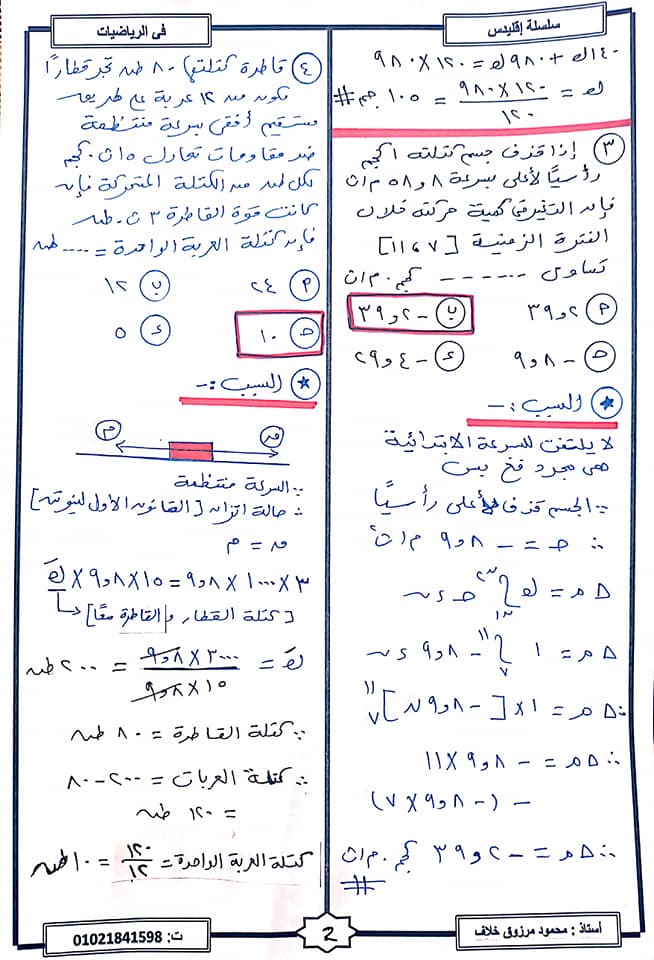 سلسلة إقليدس
فى الرياضيات
١٤٠ك + ٩٨٠ك = ١٢٠ × ٩٨٠
ك = ١٢٠ × ٩٨٠ / ١١٢٠ = ١٠٥ جم #
٣ إذا قذف جسم كتلته ١ كجم
رأسيًا لأعلى بسرعة ٥٨٫٨ م/ث
فإن التغير في كمية حركته خلال
الفترة الزمنية [٧ ، ١١]
تساوى ------ كجم.م/ث
أ ٣٩٫٢
ب -٣٩٫٢
ح -٩٫٨
ء -٢٩٫٤
* السبب :-
لا يلتفت للسرعة الابتدائية
هى مجرد فخ بس
∵ الجسم قذف لأعلى رأسيًا
∴ حـ = -٩٫٨ م/ث²
Δم = ك ∫ حـ ءن
Δم = ١ ∫ -٩٫٨ ءن
١١
٧
∴ Δم = ١×[-٩٫٨ن]
١١
٧
∴ Δم = -٩٫٨ × ١١
- (-٩٫٨ × ٧)
∴ Δم = -٣٩٫٢ كجم.م/ث
#
٤ قاطرة كتلتها ٨٠ طن تجر قطارًا
تكون من ١٢ عربة على طريق
مستقيم أفقى بسرعة منتظمة
ضد مقاومات تعادل ١٥ ث.كجم
لكل طن من الكتلة المتحركة فإذا
كانت قوة القاطرة ٣ ث.طن
فإن كتلة العربة الواحدة = ---- طن
أ ٢٤
ب ١٢
ح ١٠
ء ٥
* السبب :-
م
ق
∵ السرعة منتظمة
∴ حالة اتزان [القانون الأول لنيوتن]
ق = م
٣ × ١٠٠٠ × ٩٫٨ = ١٥ × ٩٫٨ × كَ
[كتلة القطار و القاطرة معًا]
كَ = ٣٠٠٠ × ٩٫٨ / ١٥ × ٩٫٨ = ٢٠٠ طن
∵ كتلة القاطرة = ٨٠ طن
∴ كتلة العربات = ٢٠٠ - ٨٠
= ١٢٠ طن
كتلة العربة الواحدة = ١٢٠ / ١٢ = ١٠ طن
أستاذ : محمود مرزوق خلاف
2
ت: 01021841598